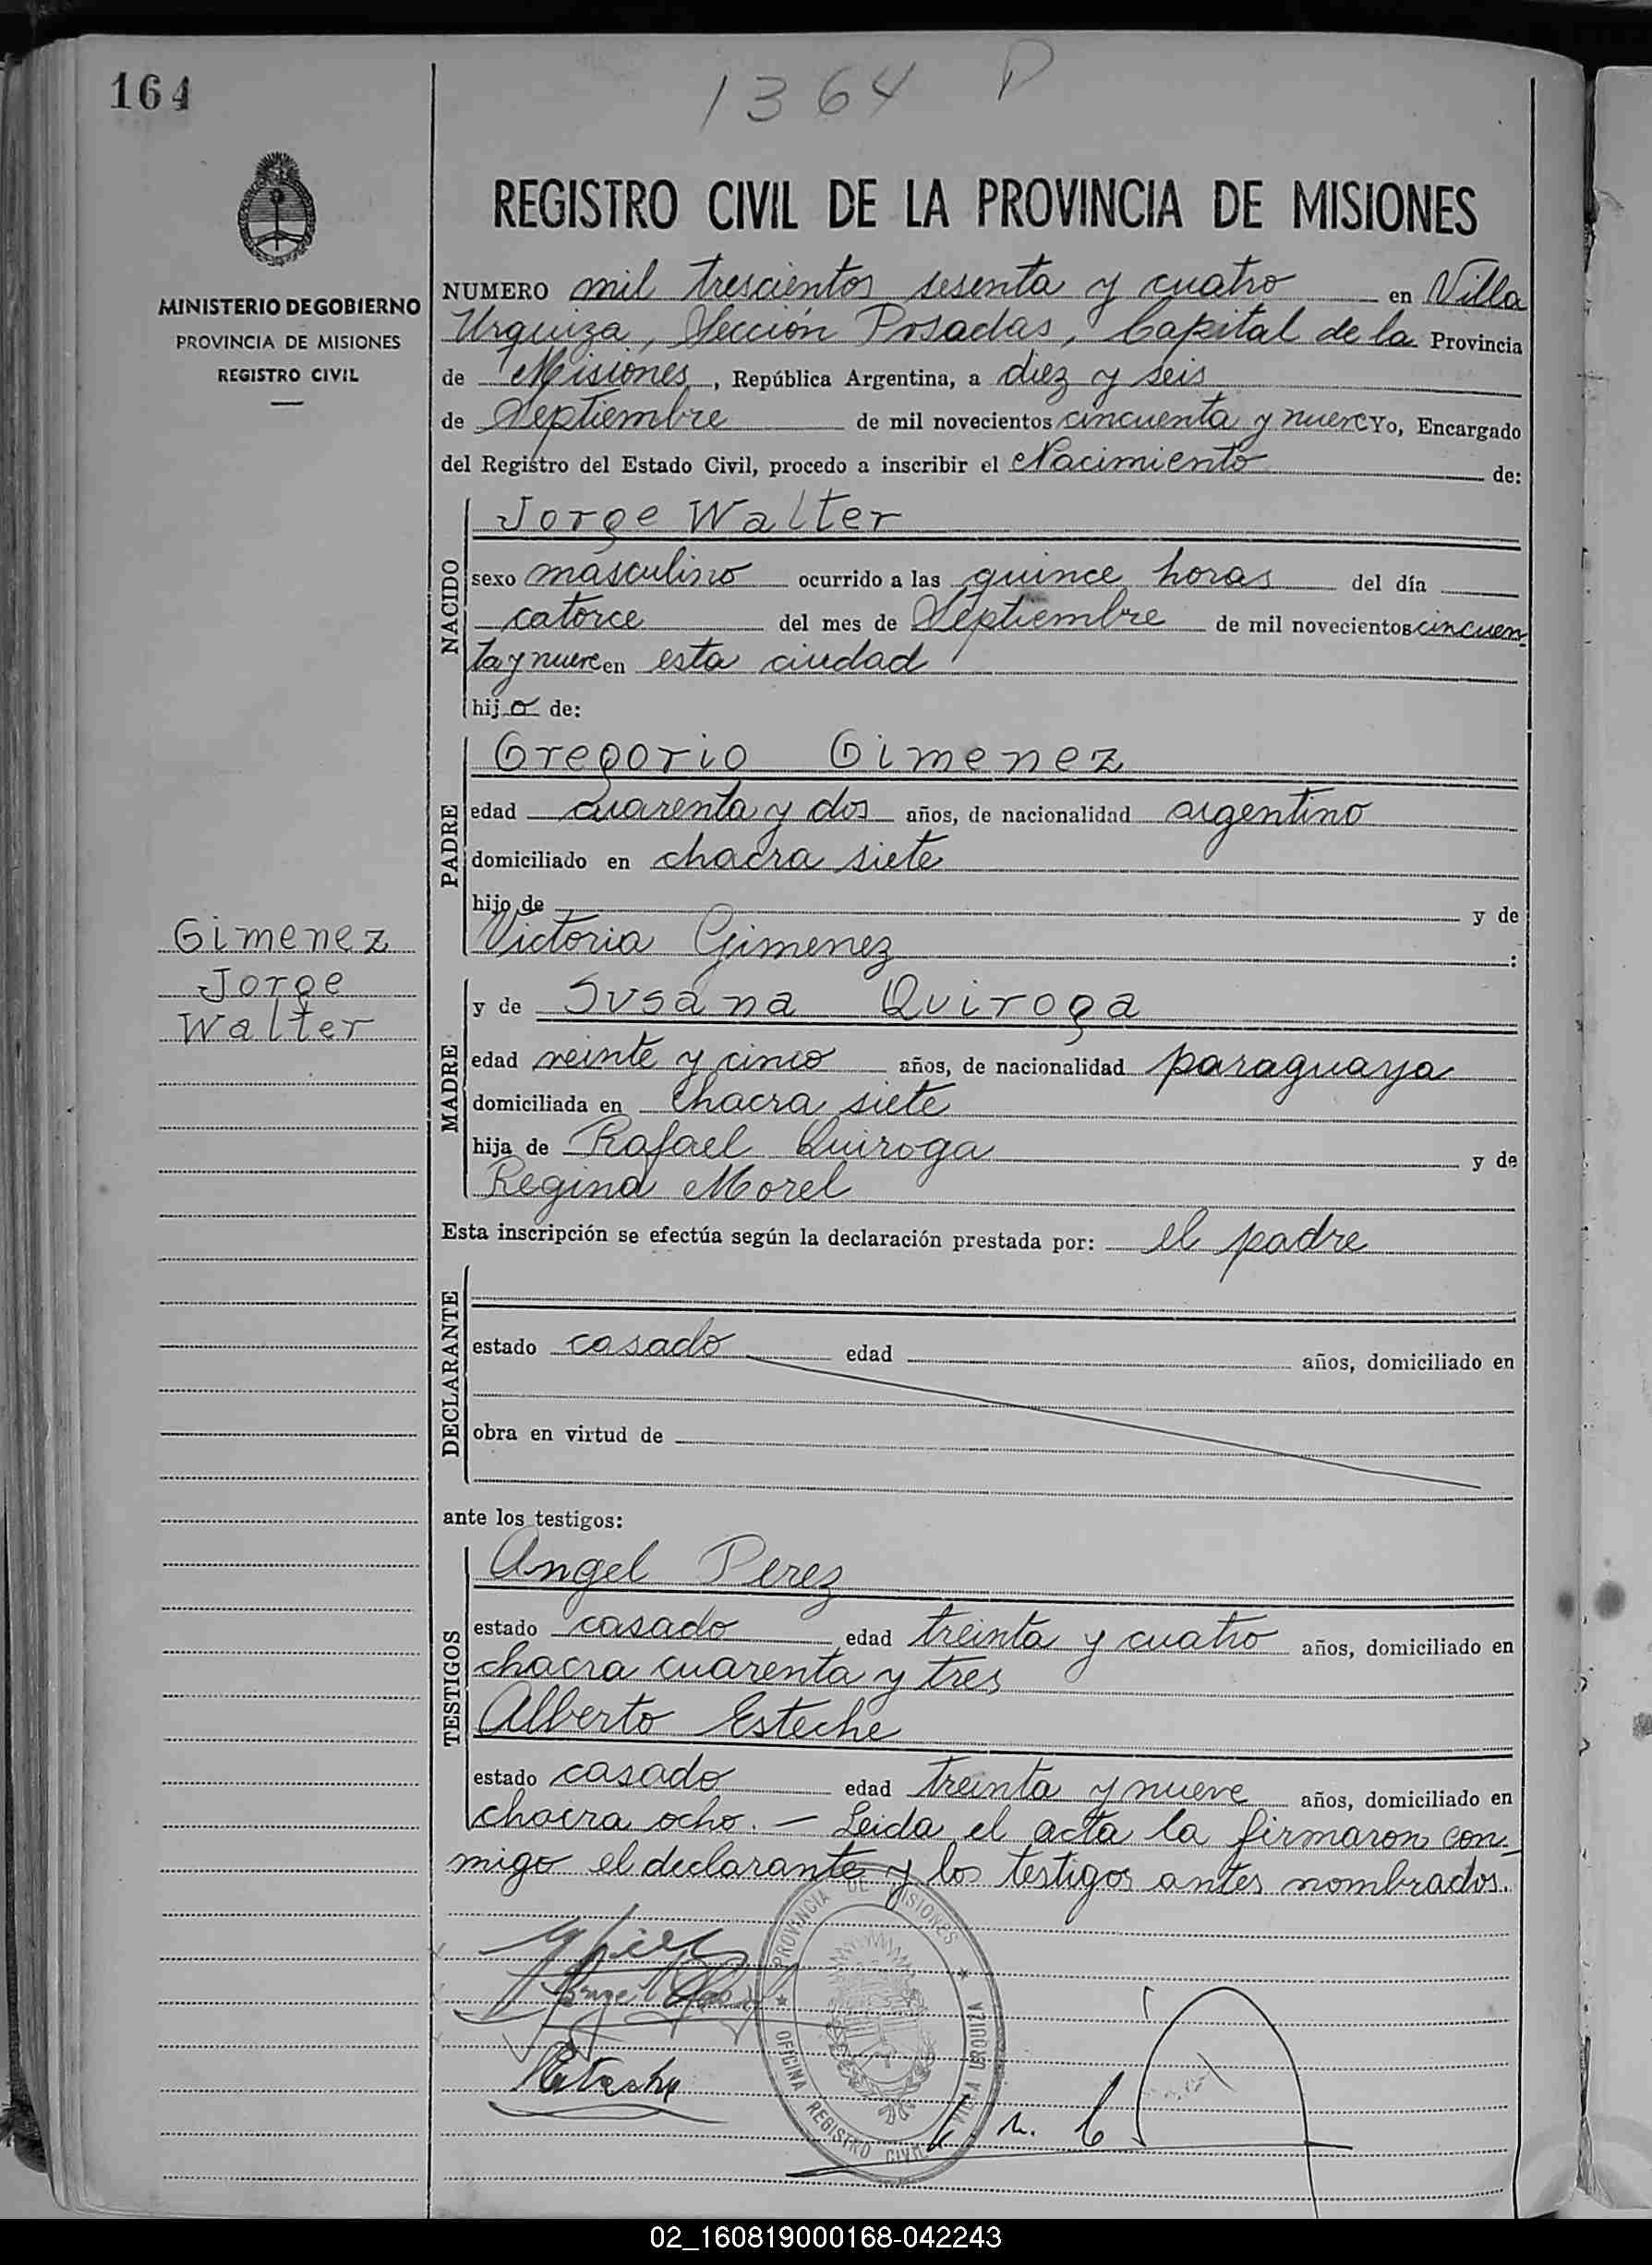 164
1364 D
MINISTERIO DE GOBIERNO
PROVINCIA DE MISIONES
REGISTRO CIVIL
REGISTRO CIVIL DE LA PROVINCIA DE MISIONES
NUMERO mil trescientos sesenta y cuatro en Villa
Urquiza, Sección Posadas, Capital de la Provincia
de Misiones, República Argentina, a diez y seis
de Septiembre de mil novecientos cincuenta y nueve Yo, Encargado
del Registro del Estado Civil, procedo a inscribir el Nacimiento de:
NACIDO
Jorge Walter
sexo masculino ocurrido a las quince horas del día
catorce del mes de Septiembre de mil novecientos cincuen
ta y nueve en esta ciudad
hijo de:
PADRE
Gregorio Gimenez
edad cuarenta y dos años, de nacionalidad argentino
domiciliado en chacra siete
hijo de y de
Victoria Gimenez :
Gimenez
Jorge
Walter
MADRE
y de Susana Quiroga
edad veinte y cinco años, de nacionalidad paraguaya
domiciliada en chacra siete
hija de Rafael Quiroga y de
Regina Morel
Esta inscripción se efectúa según la declaración prestada por: el padre
DECLARANTE
estado casado edad años, domiciliado en
obra en virtud de
ante los testigos:
TESTIGOS
Angel Perez
estado casado edad treinta y cuatro años, domiciliado en
chacra cuarenta y tres
Alberto Esteche
estado casado edad treinta y nueve años, domiciliado en
chacra ocho. — Leida el acta la firmaron con-
migo el declarante y los testigos antes nombrados.
PROVINCIA DE MISIONES
OFICINA REGISTRO CIVIL VILLA URQUIZA
02_160819000168-042243